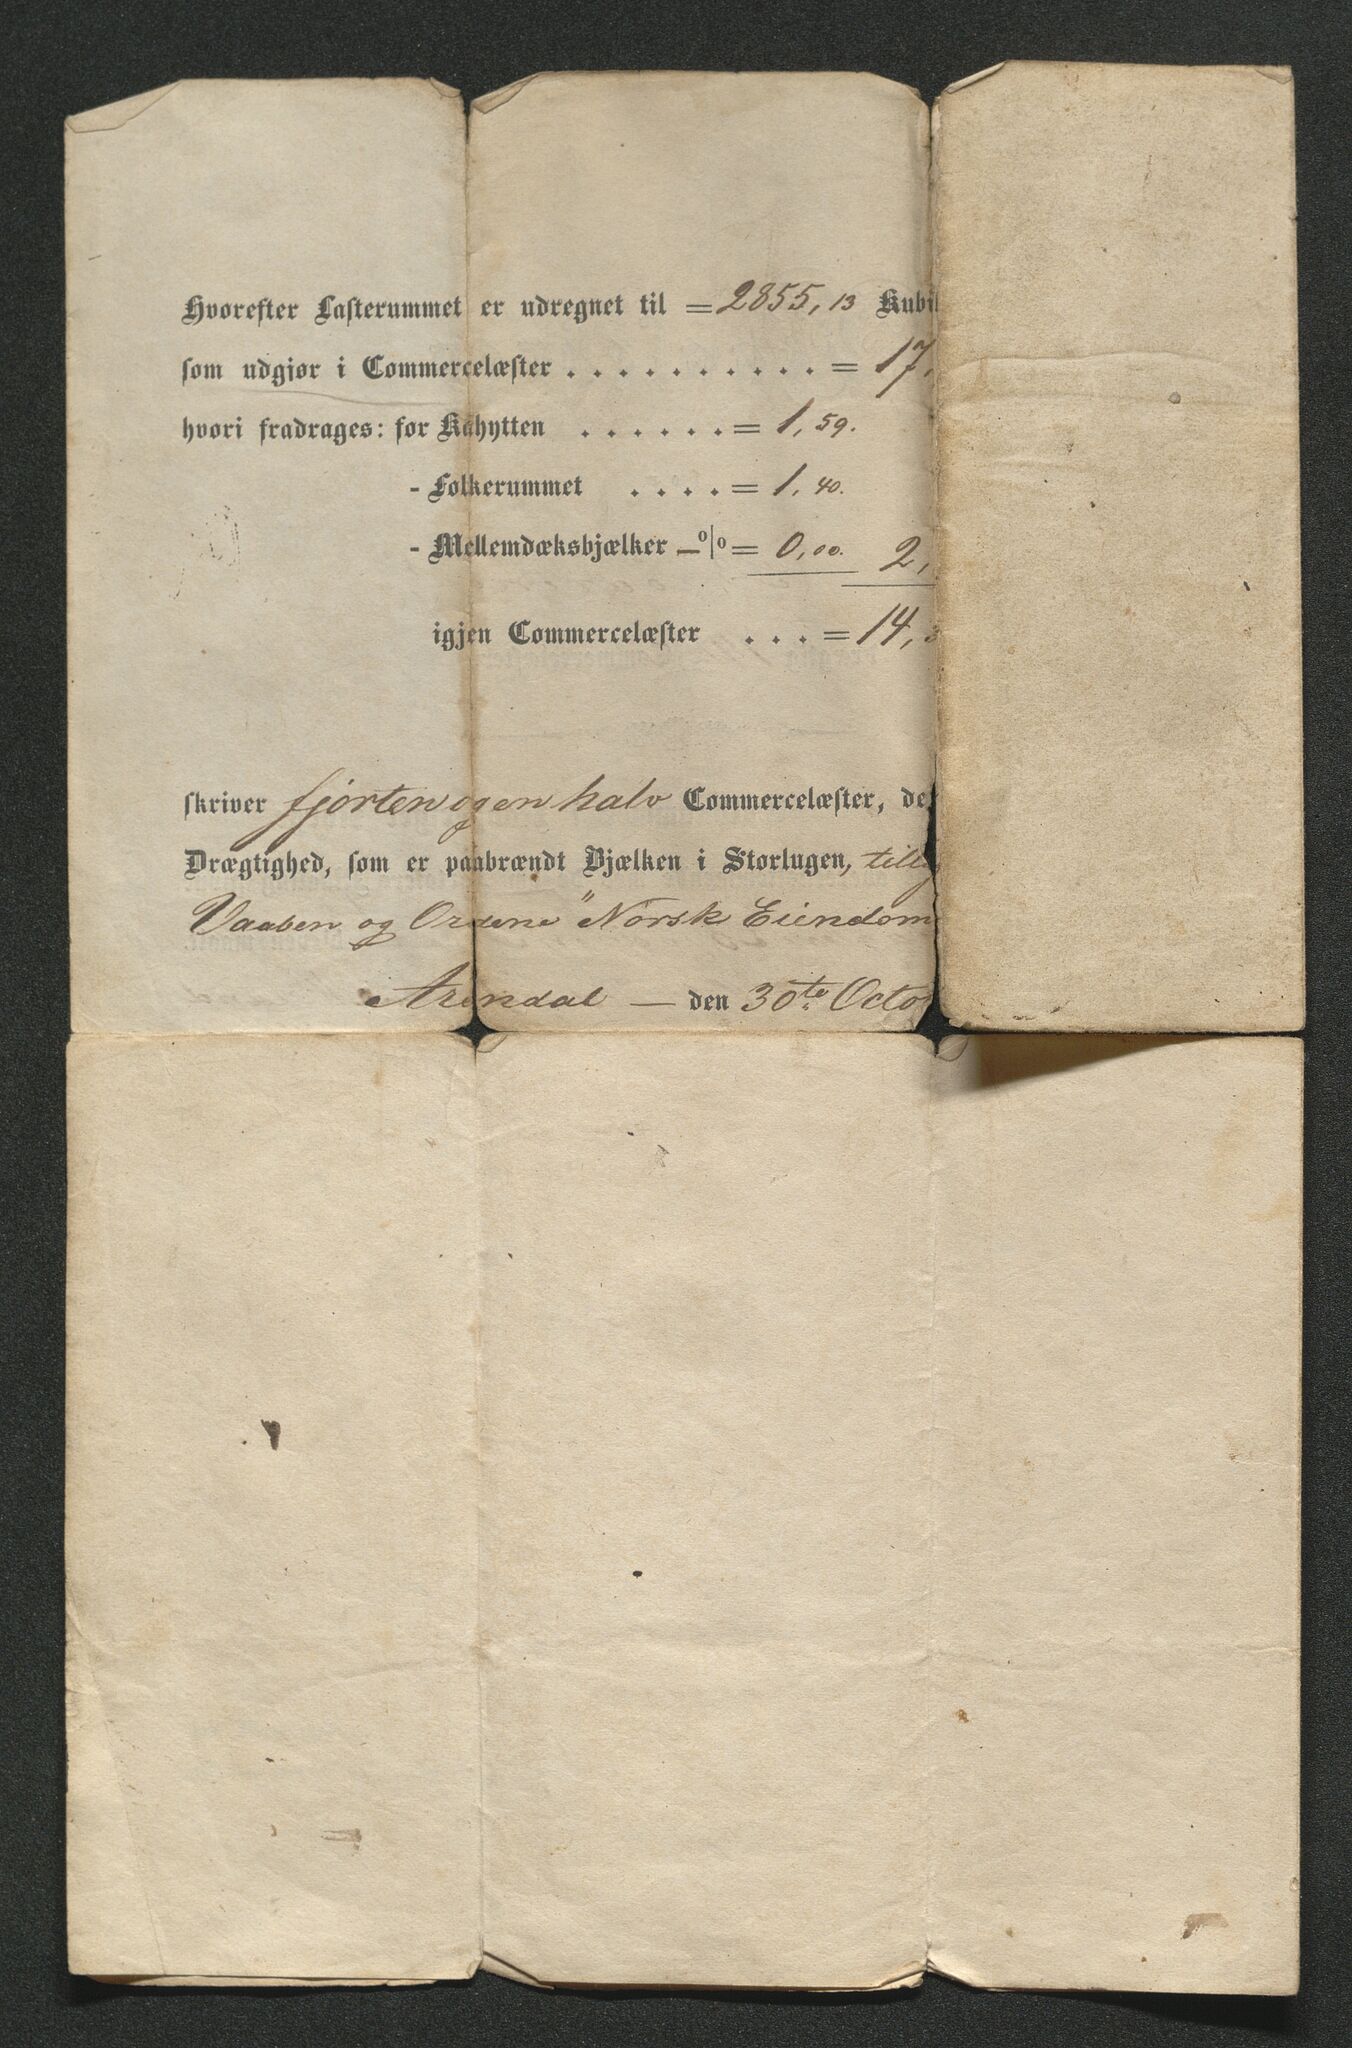 Hvorefter Lasterummet er udregnet til = 2855,13 Kubik
som udgjør i Commercelæster . . . . . . . . . . = 17,
hvori fradrages: for Kahytten . . . . . . = 1,59.
- Folkerummet . . . . = 1,40.
- Mellemdæksbjælker — o/o = 0,00. 2,
igjen Commercelæster . . . = 14,
skriver fjorten og en halv Commercelæster, de
Drægtighed, som er paabrændt Bjælken i Storlugen, till
Vaaben og Ordene "Norsk Eiendom
Arendal — den 30te Octo